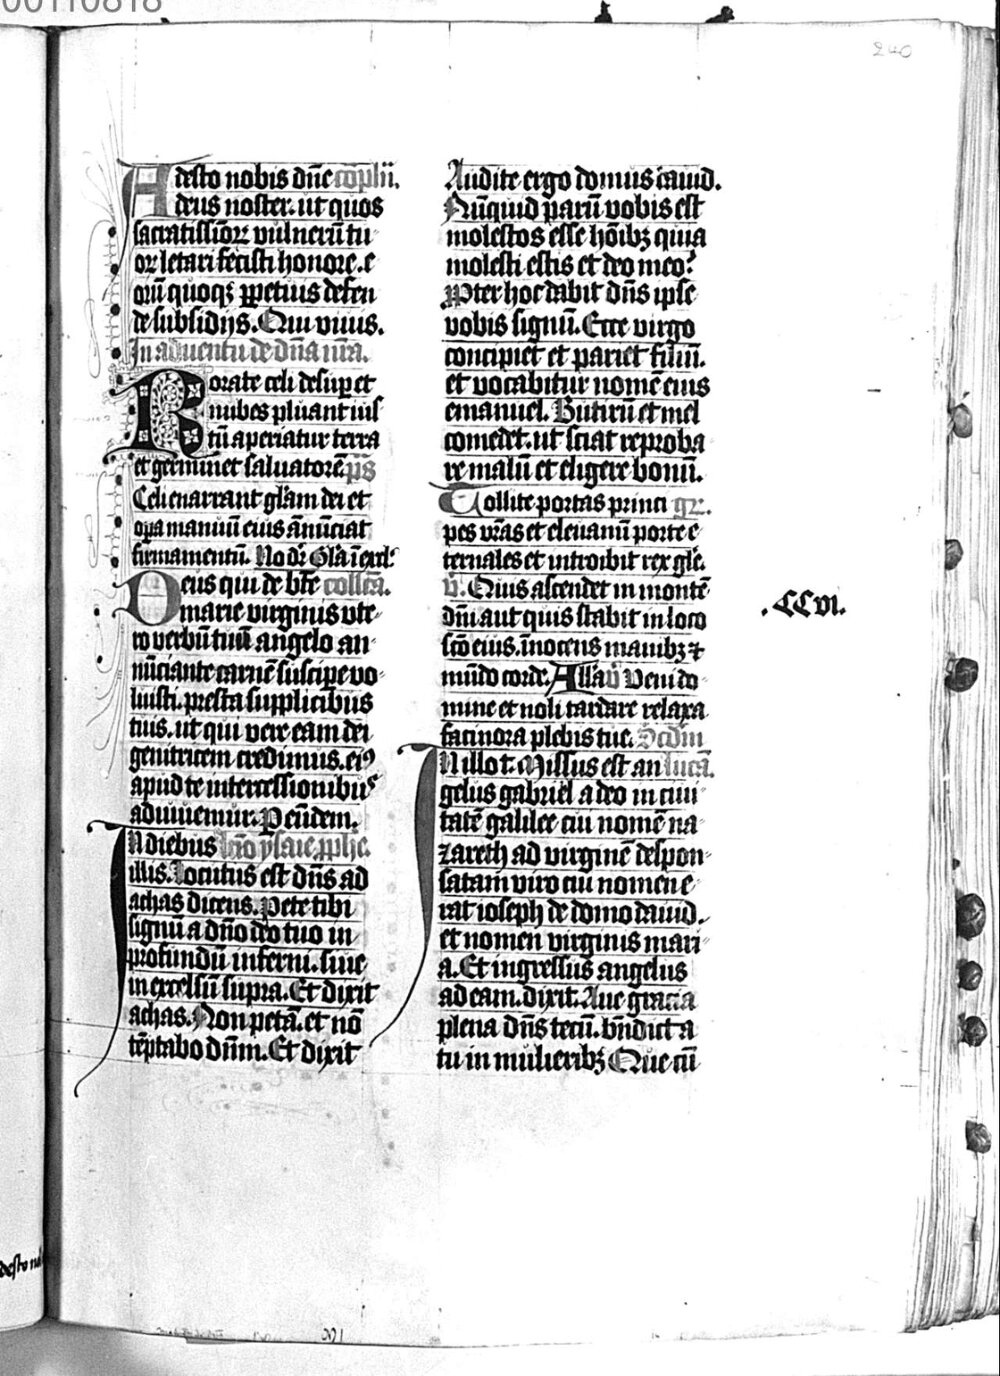 00110818
240
Adesto nobis dñe cõplñ.
deus noster. ut quos
sacratissiõꝝ vulnerũ tu
oꝝ letari fecisti honore. e
orũ quoqꝫ ꝑpetuis defen
de subsidijs. Qui viuis.
In aduentu de dña nr̃a.
Rorate celi desuꝑ et
nubes pluant ius
tũ aperiatur terra
et germinet saluatorẽ ps̃
Celi enarrant gl̃am dei et
oꝑa manuũ eius ãnũciat
firmamentũ. No dr̃ Gl̃a ĩ excel
Deus qui de bt̃e collcã.
marie virginis vte
ro verbũ tuũ angelo an
nũciante carnẽ suscipe vo
luisti. presta supplicibus
tuis. ut qui vere eam dei
genitricem credimus. eiꝯ
apud te intercessionibus
adiuuemur. P eũdem.
In diebus lcõ ysaie ꝓphe.
illis. Locutus est dñs ad
achas dicens. Pete tibi
signũ a dño deo tuo in
profundũ inferni. siue
in excelsũ supra. Et dixit
achas. Non petã. et nõ
tẽptabo dñm. Et dixit
Audite ergo domus dauid.
Nũquid parũ vobis est
molestos esse hõibꝫ quia
molesti estis et deo meo?
Ꝓpter hoc dabit dñs ipse
vobis signũ. Ecce virgo
concipiet et pariet filiũ.
et vocabitur nomẽ eius
emanuel. Butirũ et mel
comedet. ut sciat reproba
re malũ et eligere bonũ.
Tollite portas princi gꝝ.
pes vr̃as et eleuamĩ porte e
ternales et introibit rex gl̃e.
v̄. Quis ascendet in montẽ
dñi aut quis stabit in loco
scõ eius. ĩnocens manibꝫ ⁊
mũdo corde. All̃a v̄ Veni do
mine et noli tardare relaxa
facinora plebis tue. Scd̃m
In illo t. Missus est an lucã.
gelus gabriel a deo in ciui
tatẽ galilee cui nomẽ na
zareth ad virginẽ despon
satam viro cui nomen e
rat ioseph de domo dauid.
et nomen virginis mari
a. Et ingressus angelus
ad eam. dixit. Aue gracia
plena dñs tecũ. bñdicta
tu in mulieribꝫ Que cũ
.CCvi.